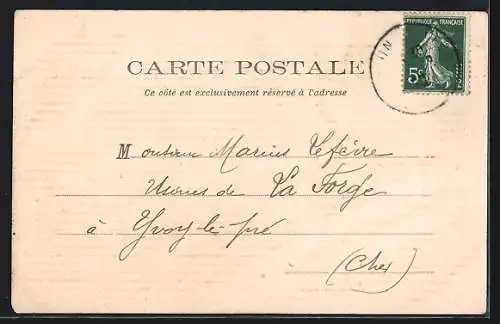 REPUBLIQUE FRANÇAISE
5c
CARTE POSTALE
Ce côté est exclusivement réservé à l'adresse
Monsieur Marius Lefèvre
Usines de La Forge
à Yvoy-le-pré
(Cher)